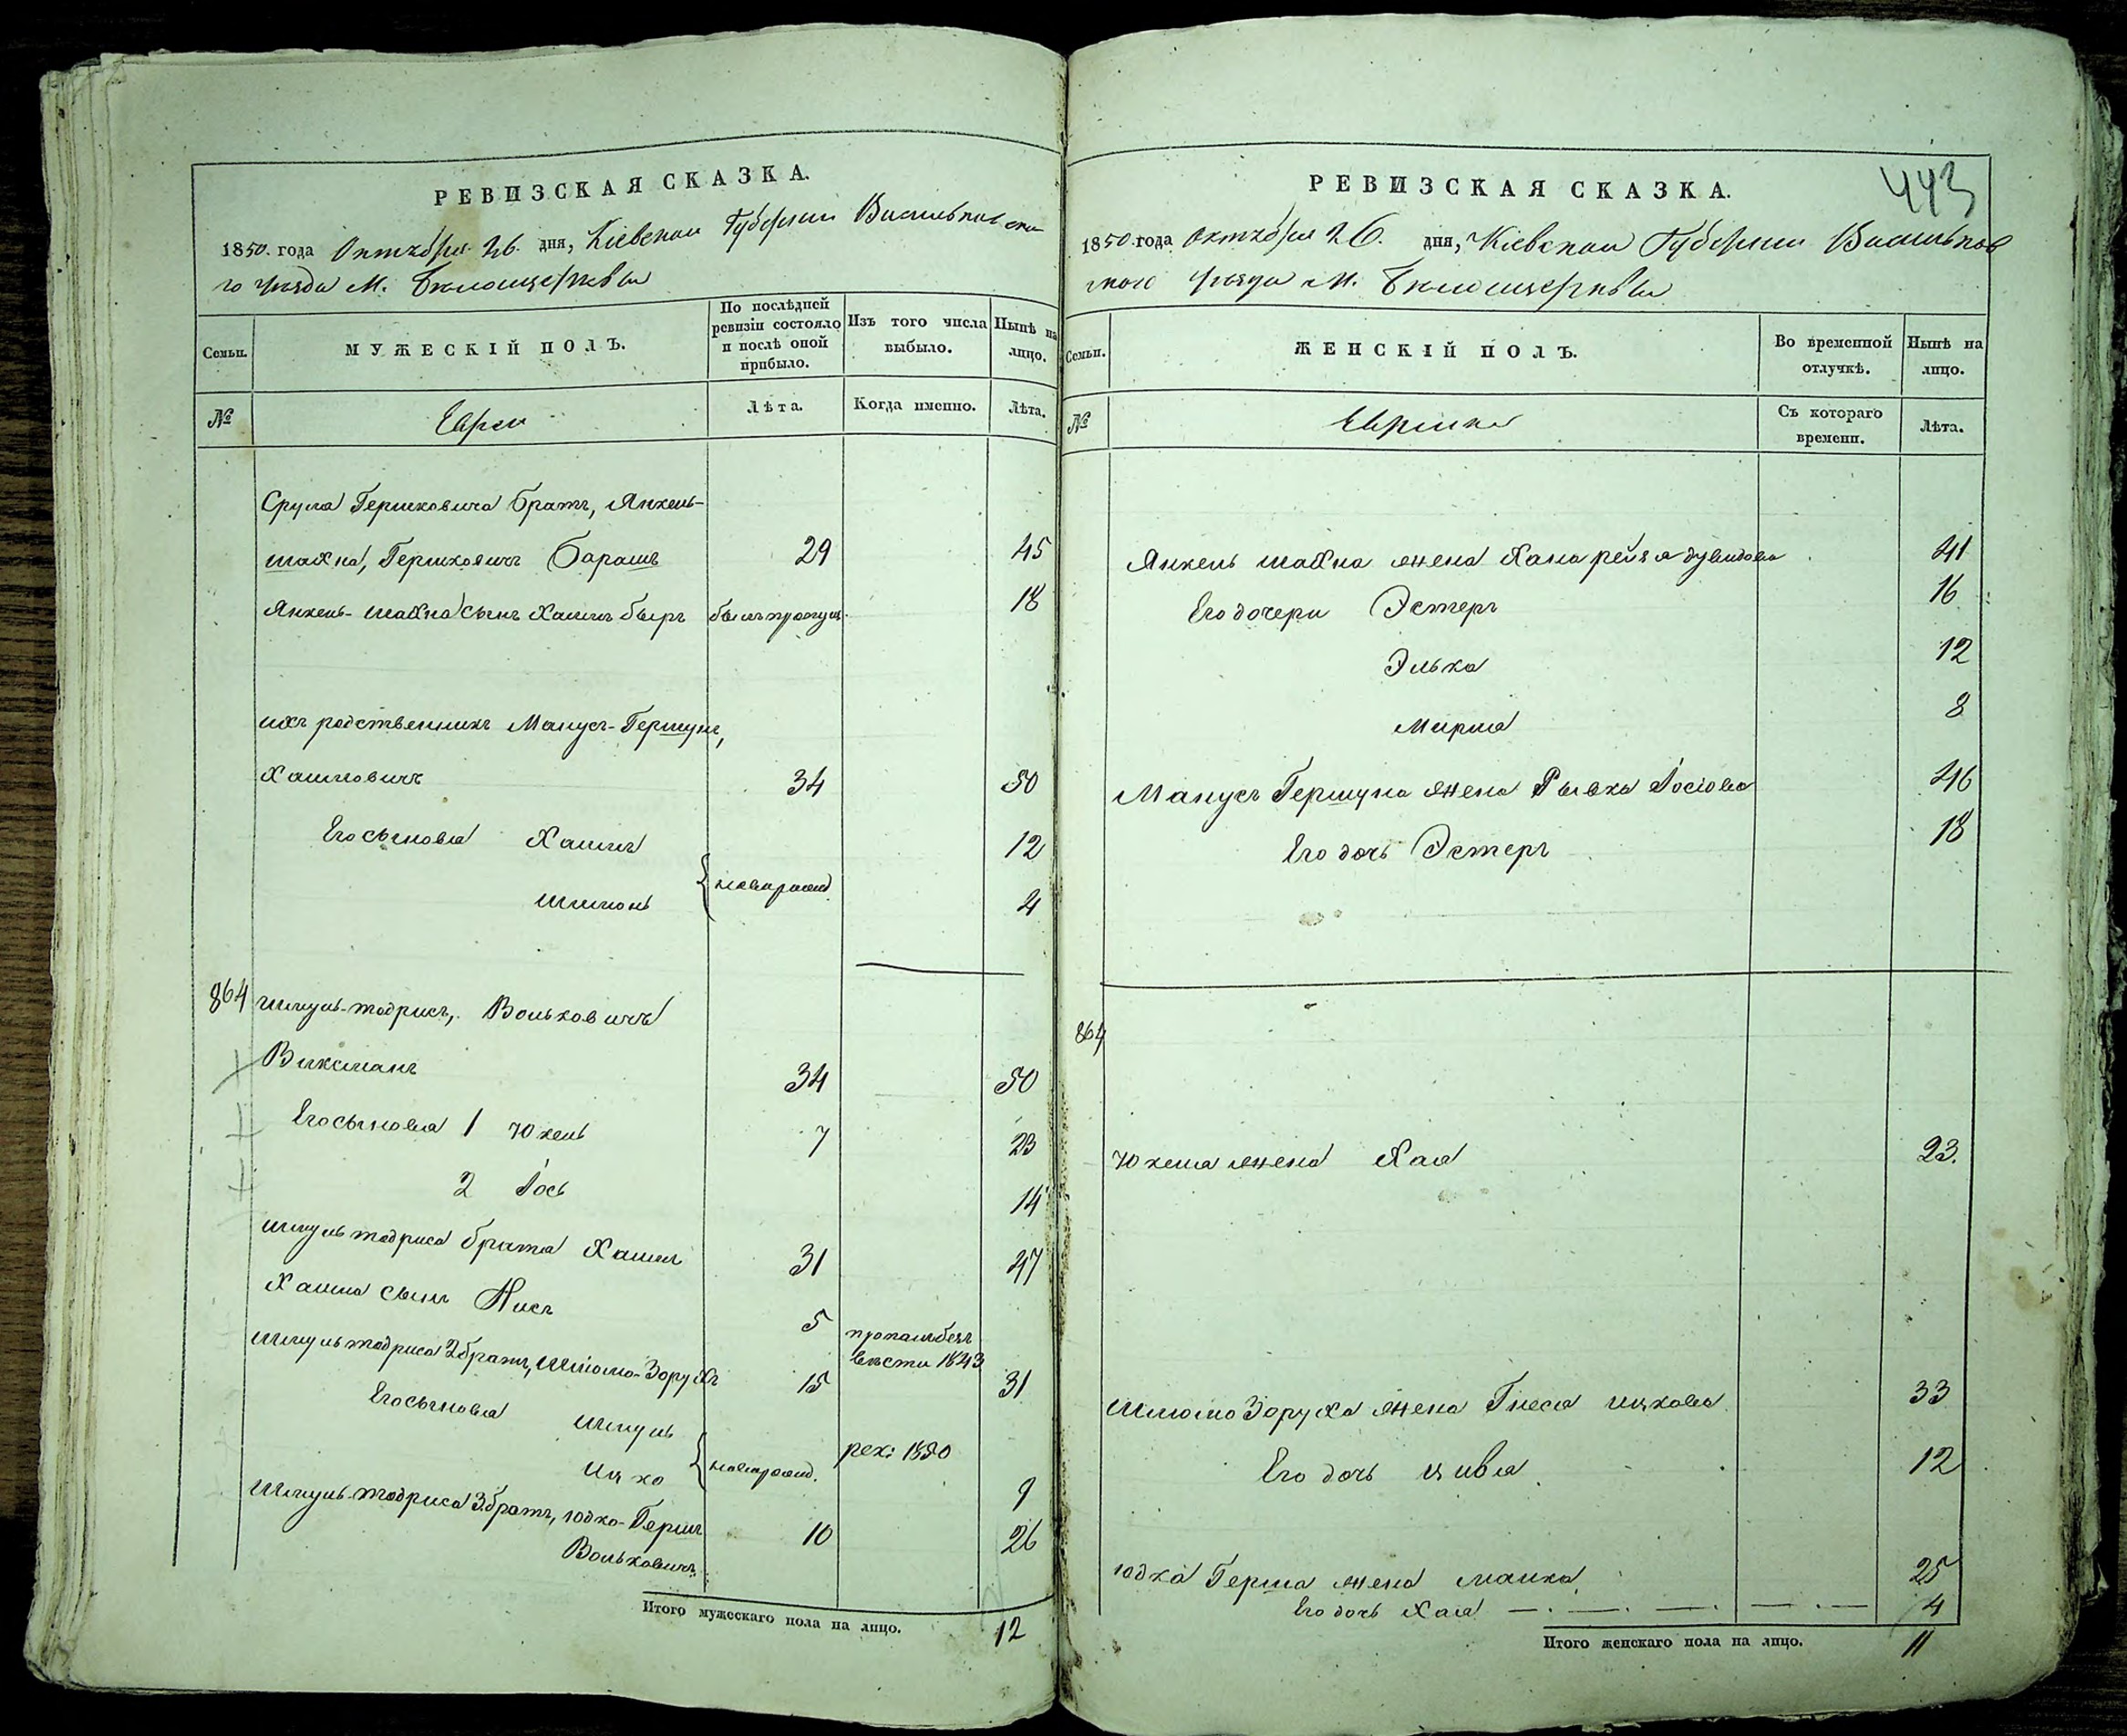 РЕВИЗСКАЯ СКАЗКА.
1850. года Октября 26. дня, Кіевской Губерніи Васильковска
го уѣзда М. Бѣлоцеркви
Семьи.
МУЖЕСКІЙ ПОЛЪ.
По послѣдней ревизіи состояло и послѣ оной прибыло.
Изъ того числа выбыло.
Нынѣ на лицо.
№
Евреи
Лѣта.
Когда именно.
Лѣта.
Срула Гершковича братъ, Янкель-
шахна, Гершковичъ Барашъ 29 45
Янкель-шахна сынъ Хаимъ беръ былъ пропущ. 18
ихъ родственникъ Манусъ-Гершунъ,
Хаимовичъ 34 50
Его сыновья Хаимъ 12
Шимонъ 4
новорожд.
864 Шмуль-тодрисъ, Вольковичъ
Виксманъ 34 50
Его сыновья 1 Юхель 7 23
2 Іось 14
Шмуль тодриса брата Хаимъ 31 47
Хаима сынъ Нисъ 5 пропалъ безъ вѣсти 1843
Шмуль тодриса 2 братъ, Шліомо-Зорухъ 15 31
Его сыновья Шмуль рек: 1850
Ицко 9
новорожд.
Шмуль-тодриса 3 братъ, юдко-Гершъ 10 26
Вольковичъ
Итого мужескаго пола на лицо. 12
443
РЕВИЗСКАЯ СКАЗКА.
1850. года Октября 26. дня, Кіевской Губерніи Васильков
скаго уѣзда М. Бѣлоцеркви
Семьи.
ЖЕНСКІЙ ПОЛЪ.
Во временной отлучкѣ.
Нынѣ на лицо.
№
Еврейки
Съ котораго времени.
Лѣта.
Янкель шахна жена Хана рейзя дувидова 41
Его дочери Эстеръ 16
Элька 12
Мирка 8
Манусъ Гершуна жена Рывка Іосіова 46
Его дочь Эстеръ 18
864
Юхеля жена Хая 23.
Шліомо Зоруха жена Гнеся ицкова 33
Его дочь цивья 12
юдка Герша жена малка 25
Его дочь Хая 4
Итого женскаго пола на лицо. 11